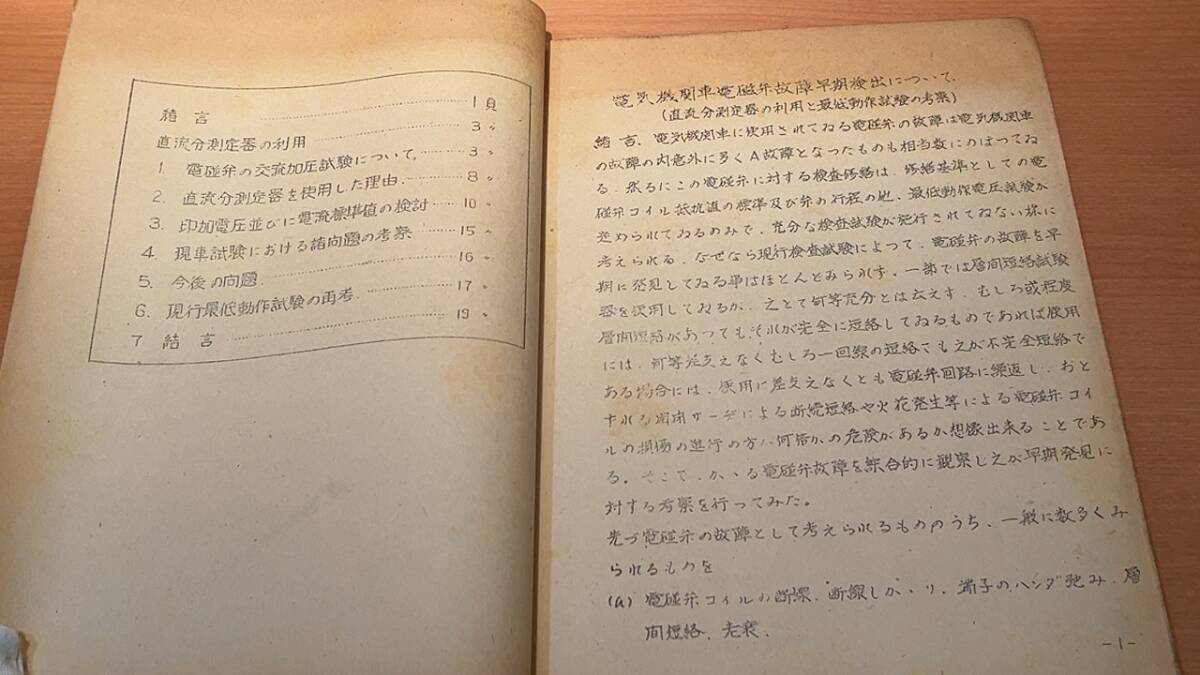 緒言 1頁
直流分測定器の利用 3〃
1. 電磁弁の交流加圧試験について. 3〃
2. 直流分測定器を使用した理由. 8〃
3. 印加電圧並びに電流標準値の検討 10〃
4. 現車試験における諸問題の考察 15〃
5. 今後の問題. 16〃
6. 現行最低動作試験の再考. 17〃
7 結言 19〃
電気機関車電磁弁故障早期検出について.
(直流分測定器の利用と最低動作試験の考察)
緒言. 電気機関車に使用されてゐる電磁弁の故障は電気機関車
の故障の内意外に多くA故障となったものも相当数にのぼってゐ
る. 然るにこの電磁弁に対する検査修繕は. 修繕基準としての電
磁弁コイル抵抗値の標準及び弁の行程の他. 最低動作電圧試験が
定められてゐるのみで. 充分な検査試験が発行されてゐない様に
考えられる. なぜなら現行検査試験によって. 電磁弁の故障を早
期に発見してゐる事はほとんどみられず. 一部では層間短絡試験
器を使用してゐるが. 之とて何等充分とは云えず. むしろ或程度
層間短絡があつてもそれが完全に短絡してゐるものであれば使用
には. 何等差支えなくむしろ一回線の短絡でも之が不完全短絡で
ある場合には. 使用に差支えなくとも電磁弁回路に繰返し. おと
ずれる サーヂによる断続短絡や火花発生等による電磁弁コイ
ルの損傷の進行の方が何倍かの危険があるか想像出来ることであ
る. そこで. かゝる電磁弁故障を綜合的に観察し之が早期発見に
対する考察を行ってみた。
先づ電磁弁の故障として考えられるもののうち. 一般に数多くみ
られるものを
(a) 電磁弁コイルの断線. 断線しかゝり. 端子のハンダ弛み. 層
間短絡. 老衰.
-1-